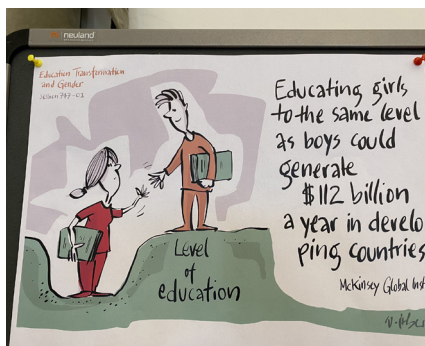 neuland
Education Transformation
and Gender
Educating girls
to the same level
as boys could
generate
$112 billion
a year in develo
ping countries
McKinsey Global Inst
Level
of
education